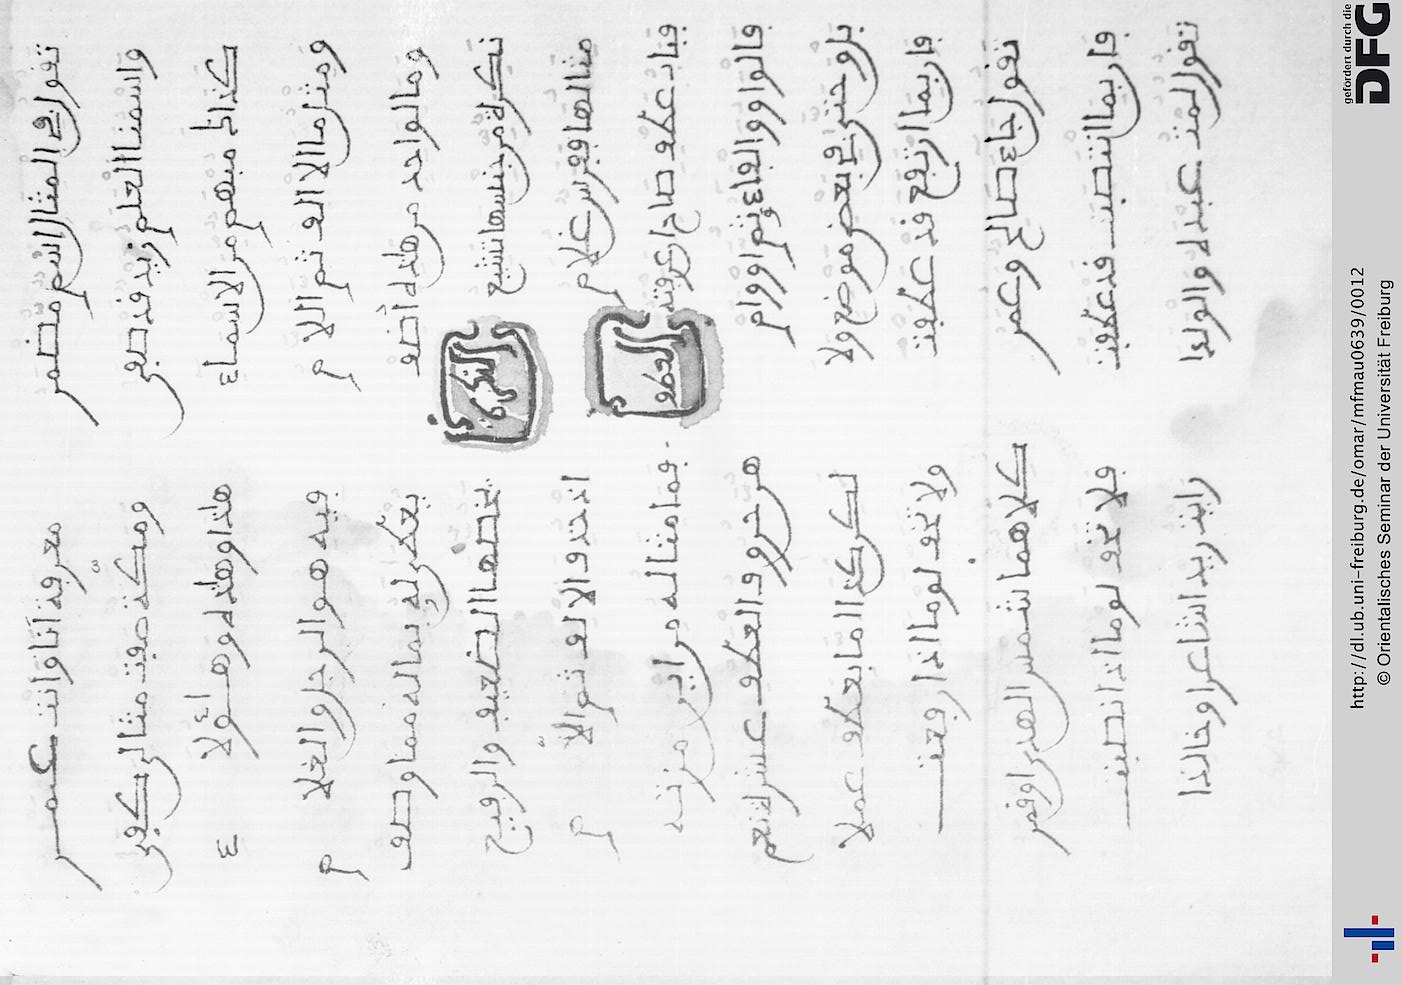 تقول في المثال اسم مضمر معرفة انا وانت عمر
واسمنا العلم زيد قد صفى ومكة صفت مثال كفى
كذاك مبهم من الاسماء هذا وهذه وهــؤلاء
ومثل ما الالف ثم اللام فيه هو الرجل والغلام
وما لواحد من هذه أضف يعكس له بماله مما وصف
نكرة من جنسها تشيع يخصها الضعيف والرفيع
النكرة
مثالها فرس غلام اذ تحذف الالف ثم الالام
باب عطف
العطف
وما مثاله من اين
فالواو والفاء ثم او وام من حروف العطف عشر نعم
بل وحتى في بعض موضع ولا لكن كذا ما يعطف عملا
فاربما ارتفع قد عطفت ولا تخف لوما اذا رفعت
تقول جاء صالح وعمر كلاهما شمس الهدى اوقمر
فاربما انتصبت قد عطفت فلا تخف لوما اذا نصبت
تقول لمت والولدا رايت زيدا شاعرا وخالدا
gefördert durch die
DFG
http://dl.ub.uni-freiburg.de/omar/mfmau0639/0012
© Orientalisches Seminar der Universität Freiburg